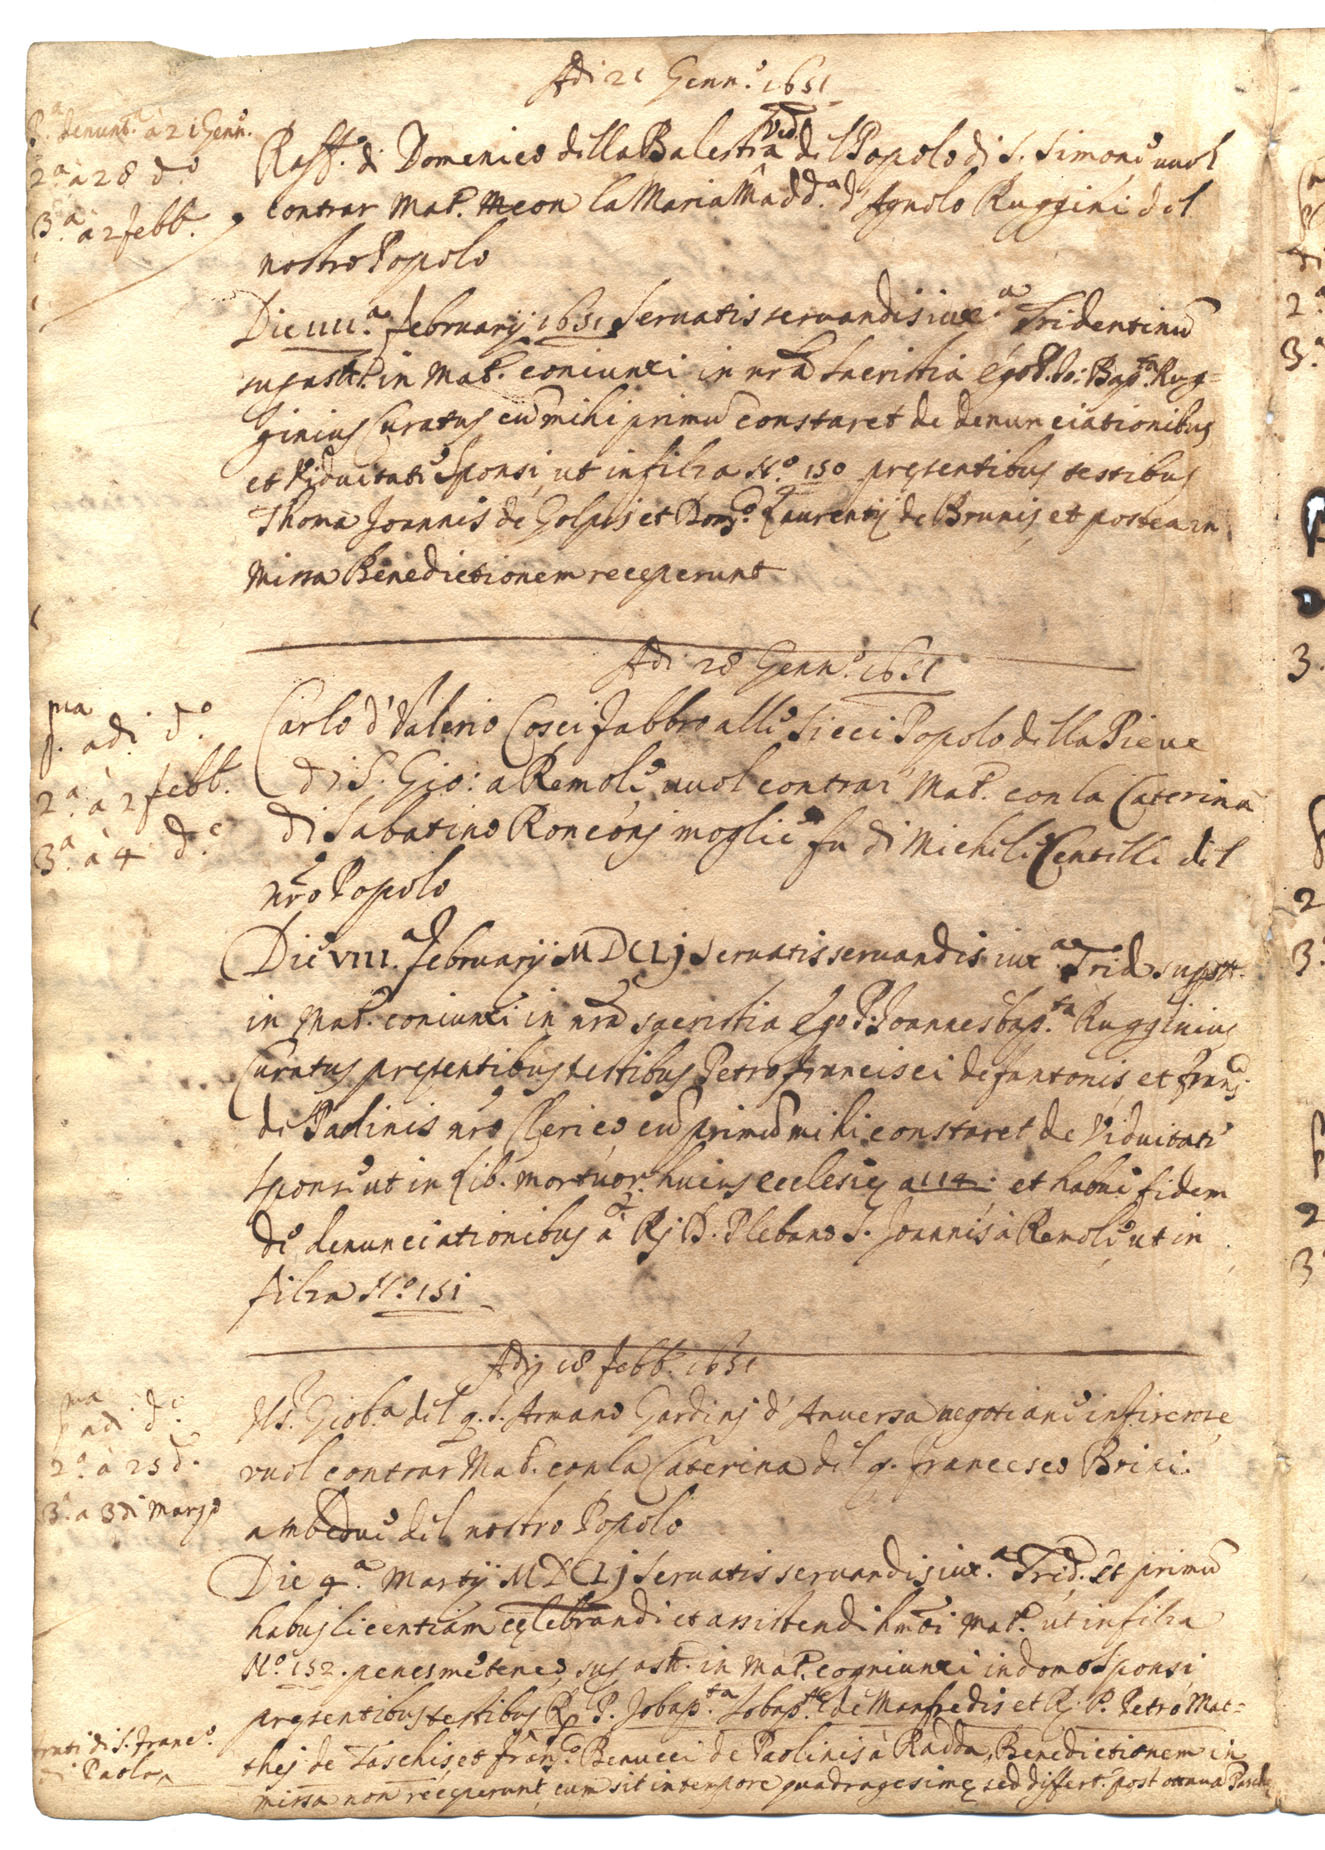 Adi 21 Genn.º 1651
P.ª denunt.ª à 21 Genn.
2.ª à 28 d.º
3.ª à 2 febb.
Raff.º di Domenico della Balestra ved.º del Popolo di S. Simone vuol
contrar Mat.º con la Maria Madd.ª d' Agnolo Ruggini del
nostro Popolo
Die IIII.ª februarij 1651 Servatis servandis iux.ª Tridentinū
in Mat.º coniunxi in nrā Sacristia Ego P. Jo: Bap.ta Rug=
ginius Curatus cū mihi primū constaret de denunciationibus
et viduitate Sponsi, ut in filza Nº. 150 presentibus testibus
Thoma Joannis de Golpis et Dom.co Laurentij de Brunis, et postea in
missa Benedictionem receperunt
Adi 28 Genn.º 1651
p.ma adi dº
2.ª à 2 febb.
3.ª à 4 d.º
Carlo d' Valerio Cosci fabbro alle Sieci Popolo della Pieve
di S. Gio: a Remole vuol contrar Mat.º con la Caterina
di Sabatino Ronconj moglie fu di Michele Centelli del
nrō Popolo
Die VIII.ª februarij MDCLj Servatis servandis iux.ª Trid. supstt.
in Mat.º coniunxi in nrā sacristia Ego P. Joannes bap.ta Rugginius
Curatus presentibus testibus Petro francisci de fantonis, et franc.º
de Paolinis nrō Clerico cū primū mihi constaret de viduitate
sponsę ut in lib. mortuor. huius ecclesię a 114. et habui fidem
de denunciationibus à Rj D. Plebano S. Joannis à Remole, ut in
filza Nº. 151
Adij 18 febb.º 1651
p.ma adi dº
2.ª à 25 d.º
3.ª a 3 di Marzo
Gio b.ª del q. S. Armano Gardinj d' Anversa negotiante in firenze
vuol contrar Mat.º con la Caterina del q. francesco Brini
ambedue del nostro Popolo
Die 4.ª Martij MDCLj Servatis servandis iux.ª Trid. Et primū
habuj licentiam cęlebrandi et assistendi Mat.º ut in filza
Nº. 152. penes me teneo, in Mat.º cogniunxi in domo Sponsi
pręsentibus testibus P. Jobap.ta Jobap.tę de Manfredis et Rj. P. Petro Mat=
thej de Taschis, et franc.º Benucci de Paolinis à Radda, Benedictionem in
missa non receperunt, cum sit in tempore quadragesimę sed differt. post
di S. Franc.º
di Paola